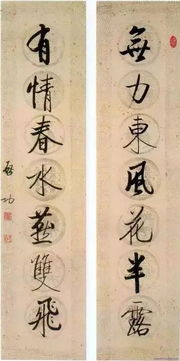 無力東風花半露
有情春水燕雙飛
啟功